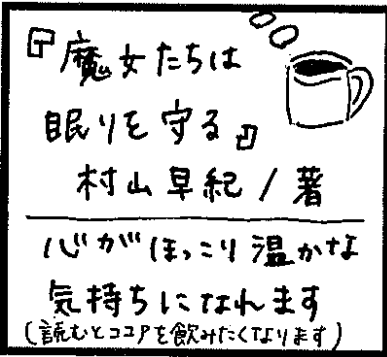 『魔女たちは
眠りを守る』
村山早紀/著
心がほっこり温かな
気持ちになれます
(読むとココアを飲みたくなります)